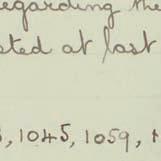 regarding the
sted at last
, 1045, 1059, 1